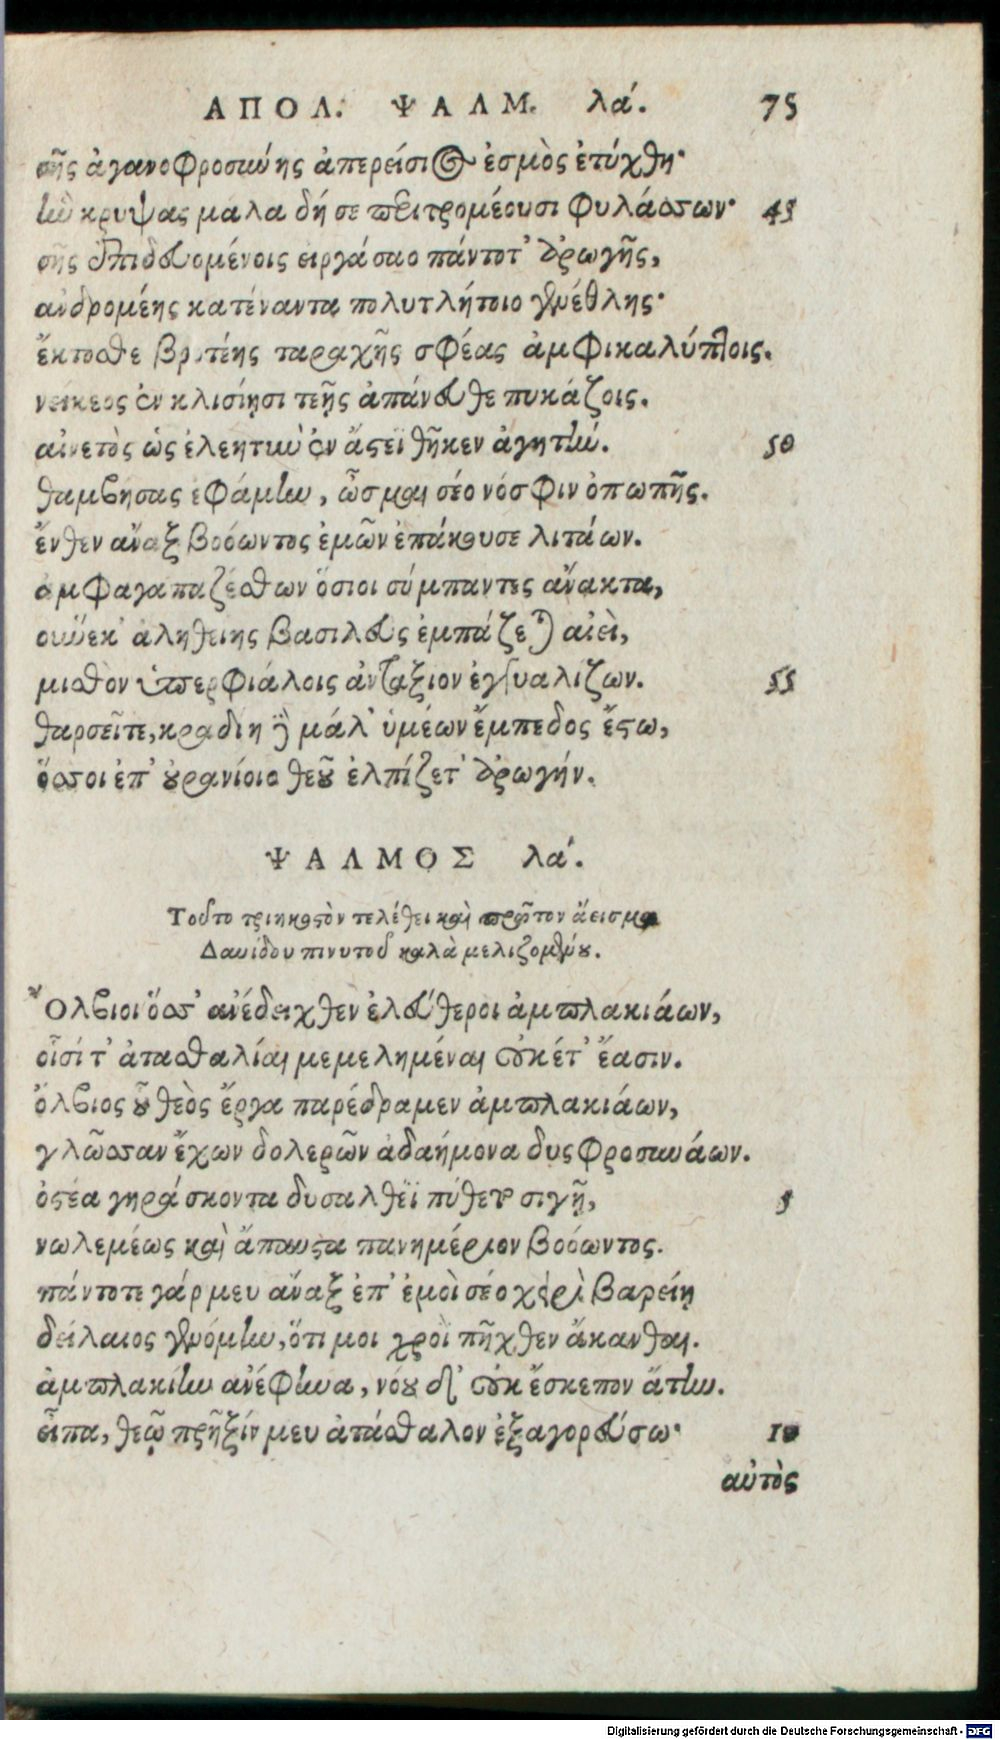 ΑΠΟΛ. ΨΑΛΜ. λά. 75
σῆς ἀγανοφροσύνης ἀπερείσιος ἑσμὸς ἐτύχθη·
ἣν κρύψας μάλα δή σε περιτρομέουσι φυλάσσων· 45
σῆς ἐπιδευομένοις εἰργάσαο πάντοτ' ἀρωγῆς,
ἀνδρομέης κατέναντα πολυτλήτοιο γενέθλης·
ἔκτοσθε βροτέης ταραχῆς σφέας ἀμφικαλύπτοις.
νείκεος ἐν κλισίῃσι τεῆς ἀπάνευθε πυκάζοις.
αἰνετὸς ὡς ἐλεητὺν ἐν ἄστεϊ θῆκεν ἀγητήν. 50
θαμβήσας ἐφάμην, ὦσμαι σέο νόσφιν ὀπωπῆς.
ἔνθεν ἄναξ βοόωντος ἐμῶν ἐπάκουσε λιτάων.
ἀμφαγαπαζέσθων ὅσιοι σύμπαντες ἄνακτα,
οὕνεκ' ἀληθείης βασιλεὺς ἐμπάζεται αἰεὶ,
μισθὸν ὑπερφιάλοις ἀντάξιον ἐγγυαλίζων. 55
θαρσεῖτε, κραδίη δὲ μάλ' ὑμέων ἔμπεδος ἔστω,
ὅσσοι ἐπ' οὐρανίοιο θεοῦ ἐλπίζετ' ἀρωγήν.
ΨΑΛΜΟΣ λά.
Τοῦτο τριηκοστὸν τελέθει καὶ πρῶτον ἄεισμα
Δαυίδου πινυτοῦ καλὰ μελιζομένου.
Ὄλβιοι ὅσσ' ἀνέδειχθεν ἐλεύθεροι ἀμπλακιάων,
οἷσί τ' ἀτασθαλίαι μεμελημέναι οὐκέτ' ἔασιν.
ὄλβιος οὗ θεὸς ἔργα παρέδραμεν ἀμπλακιάων,
γλῶσσαν ἔχων δολερῶν ἀδαήμονα δυσφροσυνάων.
ὀστέα γηράσκοντα δυσαλθέϊ πύθετο σιγῇ, 5
νωλεμέως καὶ ἄπαυστα πανημέριον βοόωντος.
πάντοτε γάρ μευ ἄναξ ἐπ' ἐμοὶ σέο χειρὶ βαρείῃ
δείλαιος γενόμην, ὅτι μοι χροῒ πῆχθεν ἄκανθαι.
ἀμπλακίην ἀνέφηνα, νόου δ' οὐκ ἔσκεπον ἄτην.
εἶπα, θεῷ πρῆξίν μευ ἀτάσθαλον ἐξαγορεύσω· 10
αὐτὸς
Digitalisierung gefördert durch die Deutsche Forschungsgemeinschaft - DFG